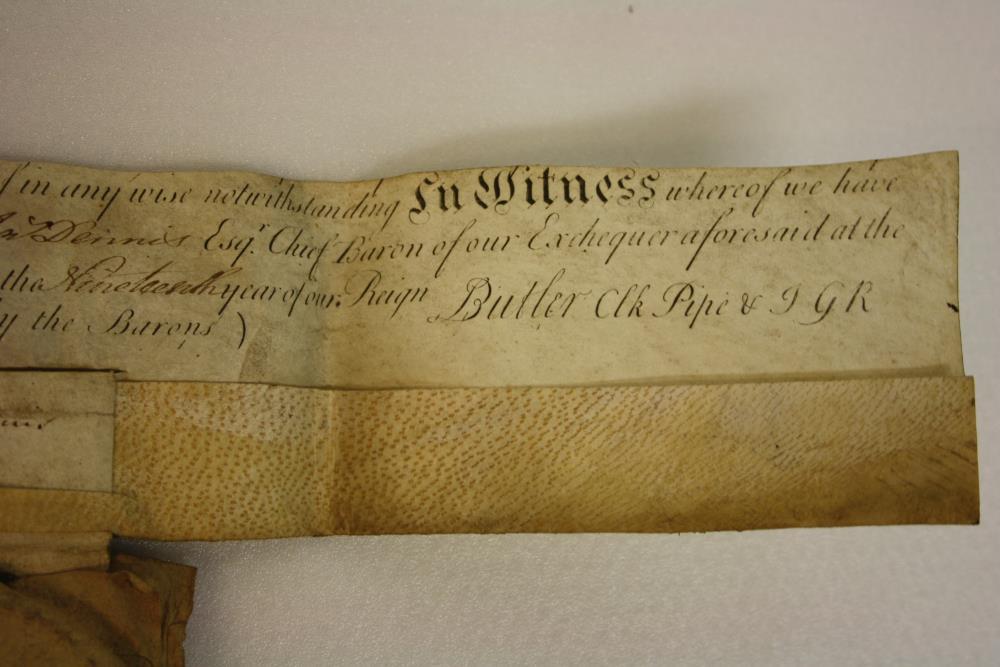 in any wise notwithstanding In Witness whereof we have
Dennis Esqr. Chief Baron of our Exchequer aforesaid at the
the Nineteenth year of our Reign Butler Clk Pipe & J G R
y the Barons )